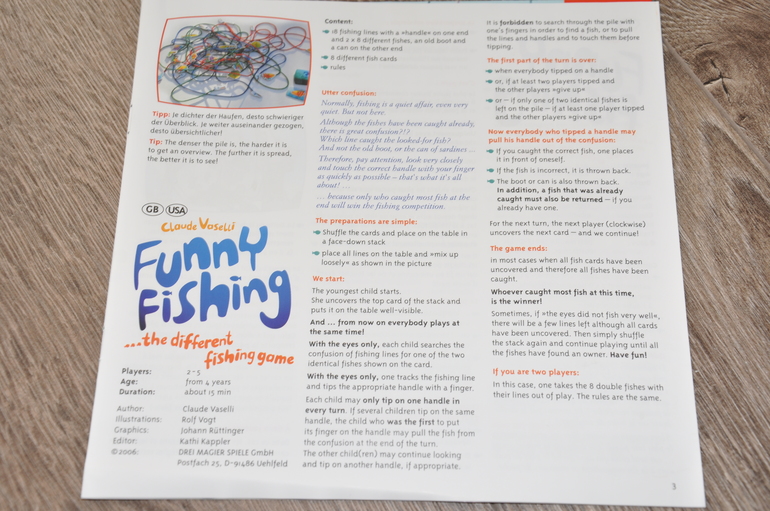 Tipp: Je dichter der Haufen, desto schwieriger
der Überblick. Je weiter auseinander gezogen,
desto übersichtlicher!
Tip: The denser the pile is, the harder it is
to get an overview. The further it is spread,
the better it is to see!
GB USA
Claude Vaselli
Funny
Fishing
...the different
fishing game
Players: 2-5
Age: from 4 years
Duration: about 15 min
Author: Claude Vaselli
Illustrations: Rolf Vogt
Graphics: Johann Rüttinger
Editor: Kathi Kappler
©2006: DREI MAGIER SPIELE GmbH
Postfach 25, D-91486 Uehlfeld
Content:
18 fishing lines with a »handle« on one end
and 2 x 8 different fishes, an old boot and
a can on the other end
8 different fish cards
rules
Utter confusion:
Normally, fishing is a quiet affair, even very
quiet. But not here.
Although the fishes have been caught already,
there is great confusion?!?
Which line caught the looked-for fish?
And not the old boot, or the can of sardines ...
Therefore, pay attention, look very closely
and touch the correct handle with your finger
as quickly as possible – that's what it's all
about! ...
... because only who caught most fish at the
end will win the fishing competition.
The preparations are simple:
Shuffle the cards and place on the table in
a face-down stack
place all lines on the table and »mix up
loosely« as shown in the picture
We start:
The youngest child starts.
She uncovers the top card of the stack and
puts it on the table well-visible.
And ... from now on everybody plays at
the same time!
With the eyes only, each child searches the
confusion of fishing lines for one of the two
identical fishes shown on the card.
With the eyes only, one tracks the fishing line
and tips the appropriate handle with a finger.
Each child may only tip on one handle in
every turn. If several children tip on the same
handle, the child who was the first to put
its finger on the handle may pull the fish from
the confusion at the end of the turn.
The other child(ren) may continue looking
and tip on another handle, if appropriate.
It is forbidden to search through the pile with
one's fingers in order to find a fish, or to pull
the lines and handles and to touch them before
tipping.
The first part of the turn is over:
when everybody tipped on a handle
or, if at least two players tipped and
the other players »give up«
or – if only one of two identical fishes is
left on the pile – if at least one player tipped
and the other players »give up«
Now everybody who tipped a handle may
pull his handle out of the confusion:
If you caught the correct fish, one places
it in front of oneself.
If the fish is incorrect, it is thrown back.
The boot or can is also thrown back.
In addition, a fish that was already
caught must also be returned – if you
already have one.
For the next turn, the next player (clockwise)
uncovers the next card – and we continue!
The game ends:
in most cases when all fish cards have been
uncovered and therefore all fishes have been
caught.
Whoever caught most fish at this time,
is the winner!
Sometimes, if »the eyes did not fish very well«,
there will be a few lines left although all cards
have been uncovered. Then simply shuffle
the stack again and continue playing until all
the fishes have found an owner. Have fun!
If you are two players:
In this case, one takes the 8 double fishes with
their lines out of play. The rules are the same.
3